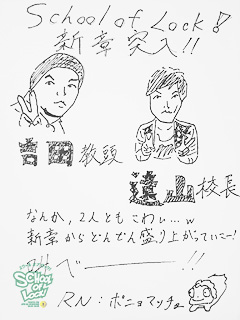 School of Lock!
新章突入!!
吉田教頭
遠山校長
なんか,2人ともこわい…w
新章からどんどん盛り上がっていこー!
叫べーーー!!
RN:ポニョマッチョ
SCHOOL OF LOCK!